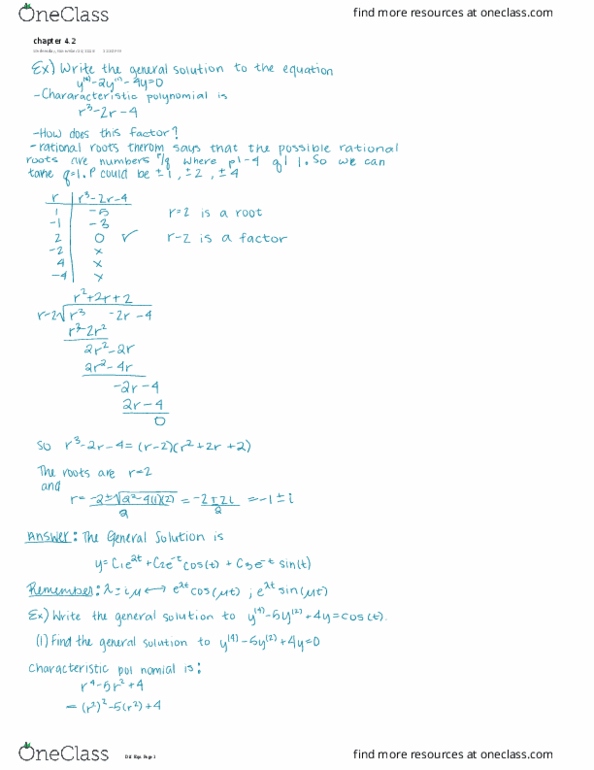 OneClass
find more resources at oneclass.com
chapter 4.2
Ex) Write the general solution to the equation
y⁽³⁾-2y⁽¹⁾-4y=0
-Chararacteristic polynomial is
r³-2r-4
-How does this factor?
-rational roots therom says that the possible rational
roots are numbers P/q where p|-4 q|1. So we can
take q=1. P could be ±1, ±2, ±4
r | r³-2r-4
1 | -5
-1 | -3
2 | 0 ✓
-2 | x
4 | x
-4 | x
r=2 is a root
r-2 is a factor
r²+2r+2
r-2√r³ -2r-4
r³-2r²
2r²-2r
2r²-4r
-2r-4
2r-4
0
So r³-2r-4=(r-2)(r²+2r+2)
The roots are r=2
and
r= -2±√2²-4(1)(2) / 2 = -2±2i / 2 = -1±i
Answer: The General Solution is
y=C₁e²ᵗ+C₂e⁻ᵗcos(t)+C₃e⁻ᵗsin(t)
Remember: λ±iμ ⟷ e^λt cos(μt), e^λt sin(μt)
Ex) Write the general solution to y⁽⁴⁾-5y⁽²⁾+4y=cos(t).
(1) Find the general solution to y⁽⁴⁾-5y⁽²⁾+4y=0
Characteristic pol nomial is:
r⁴-5r²+4
=(r²)²-5(r²)+4
OneClass
find more resources at oneclass.com